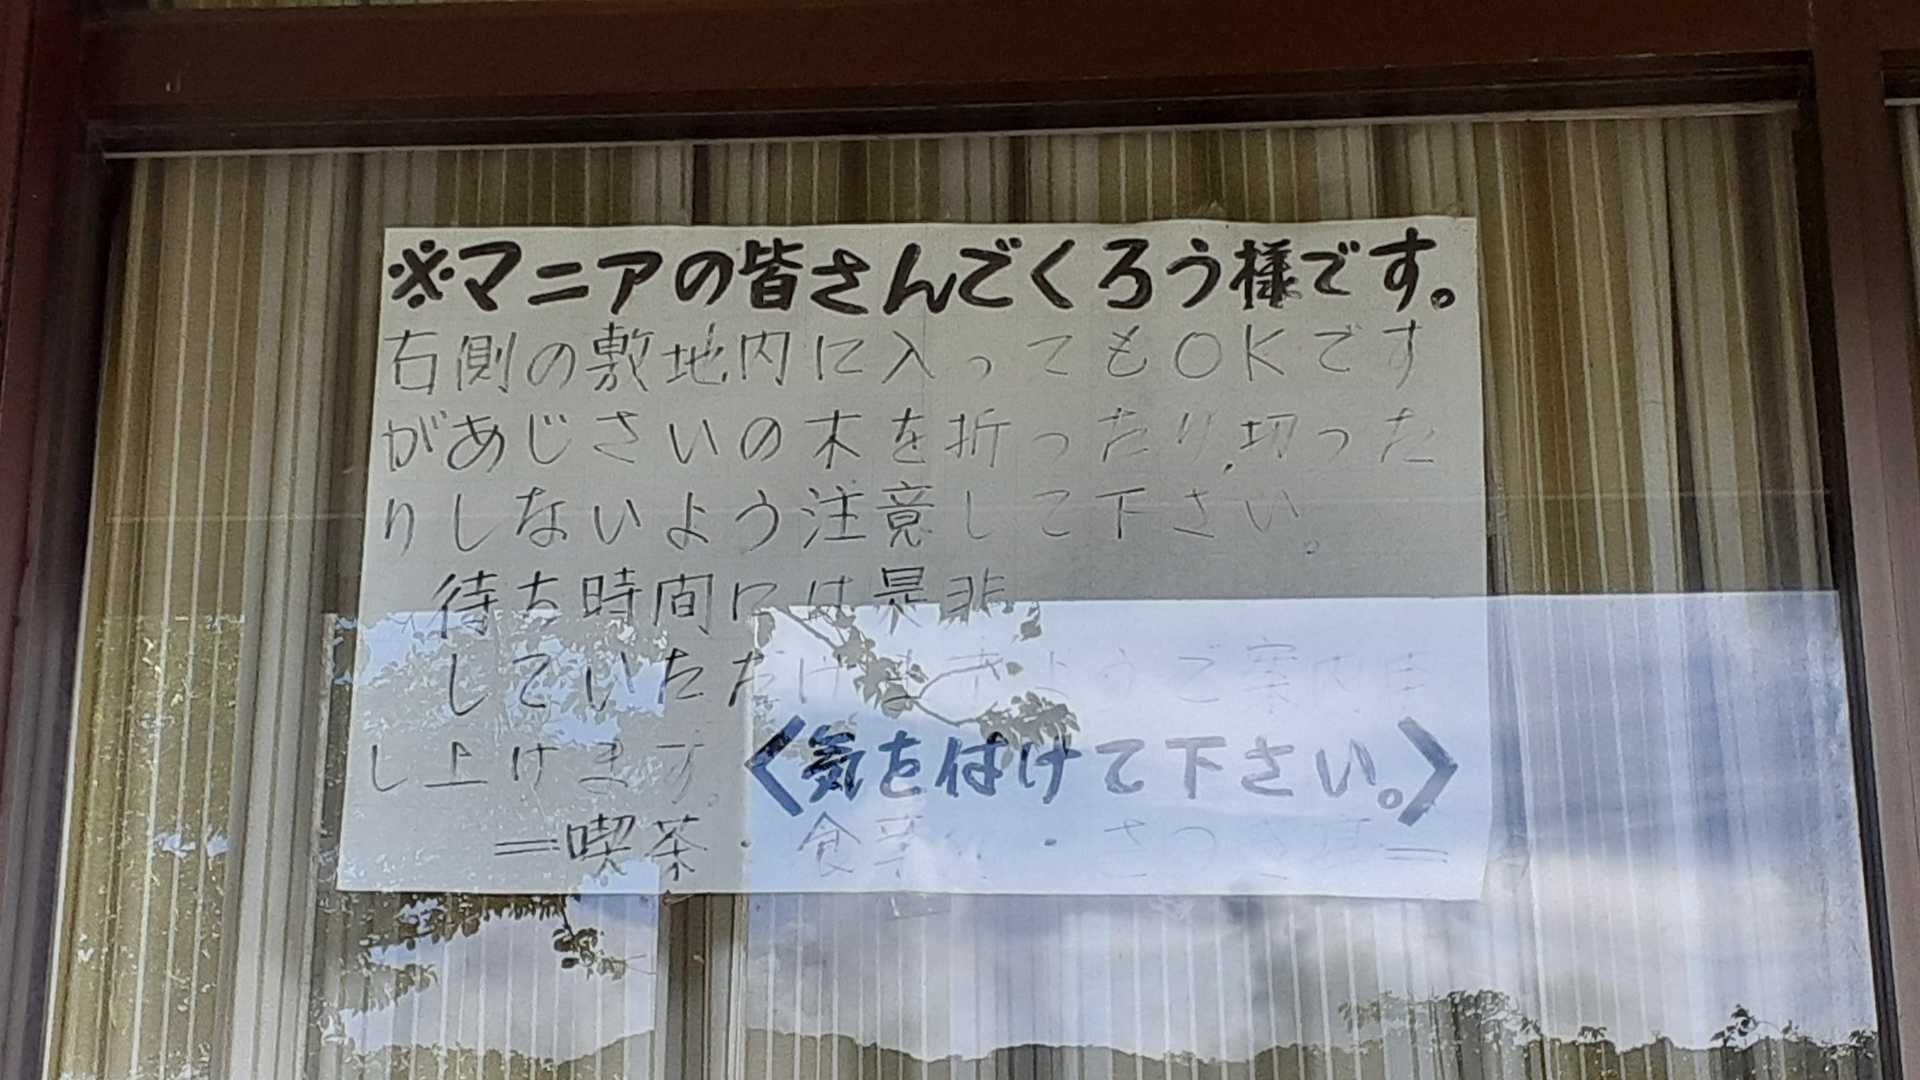 ※マニアの皆さんでくろう様です。
右側の敷地内に入ってもOKです
があじさいの木を折ったり,切った
りしないよう注意して下さい。
待ち時間には是非
していただけますようご案内申
し上げます。〈気を付けて下さい。〉
＝喫茶・食事処・さつき亭＝